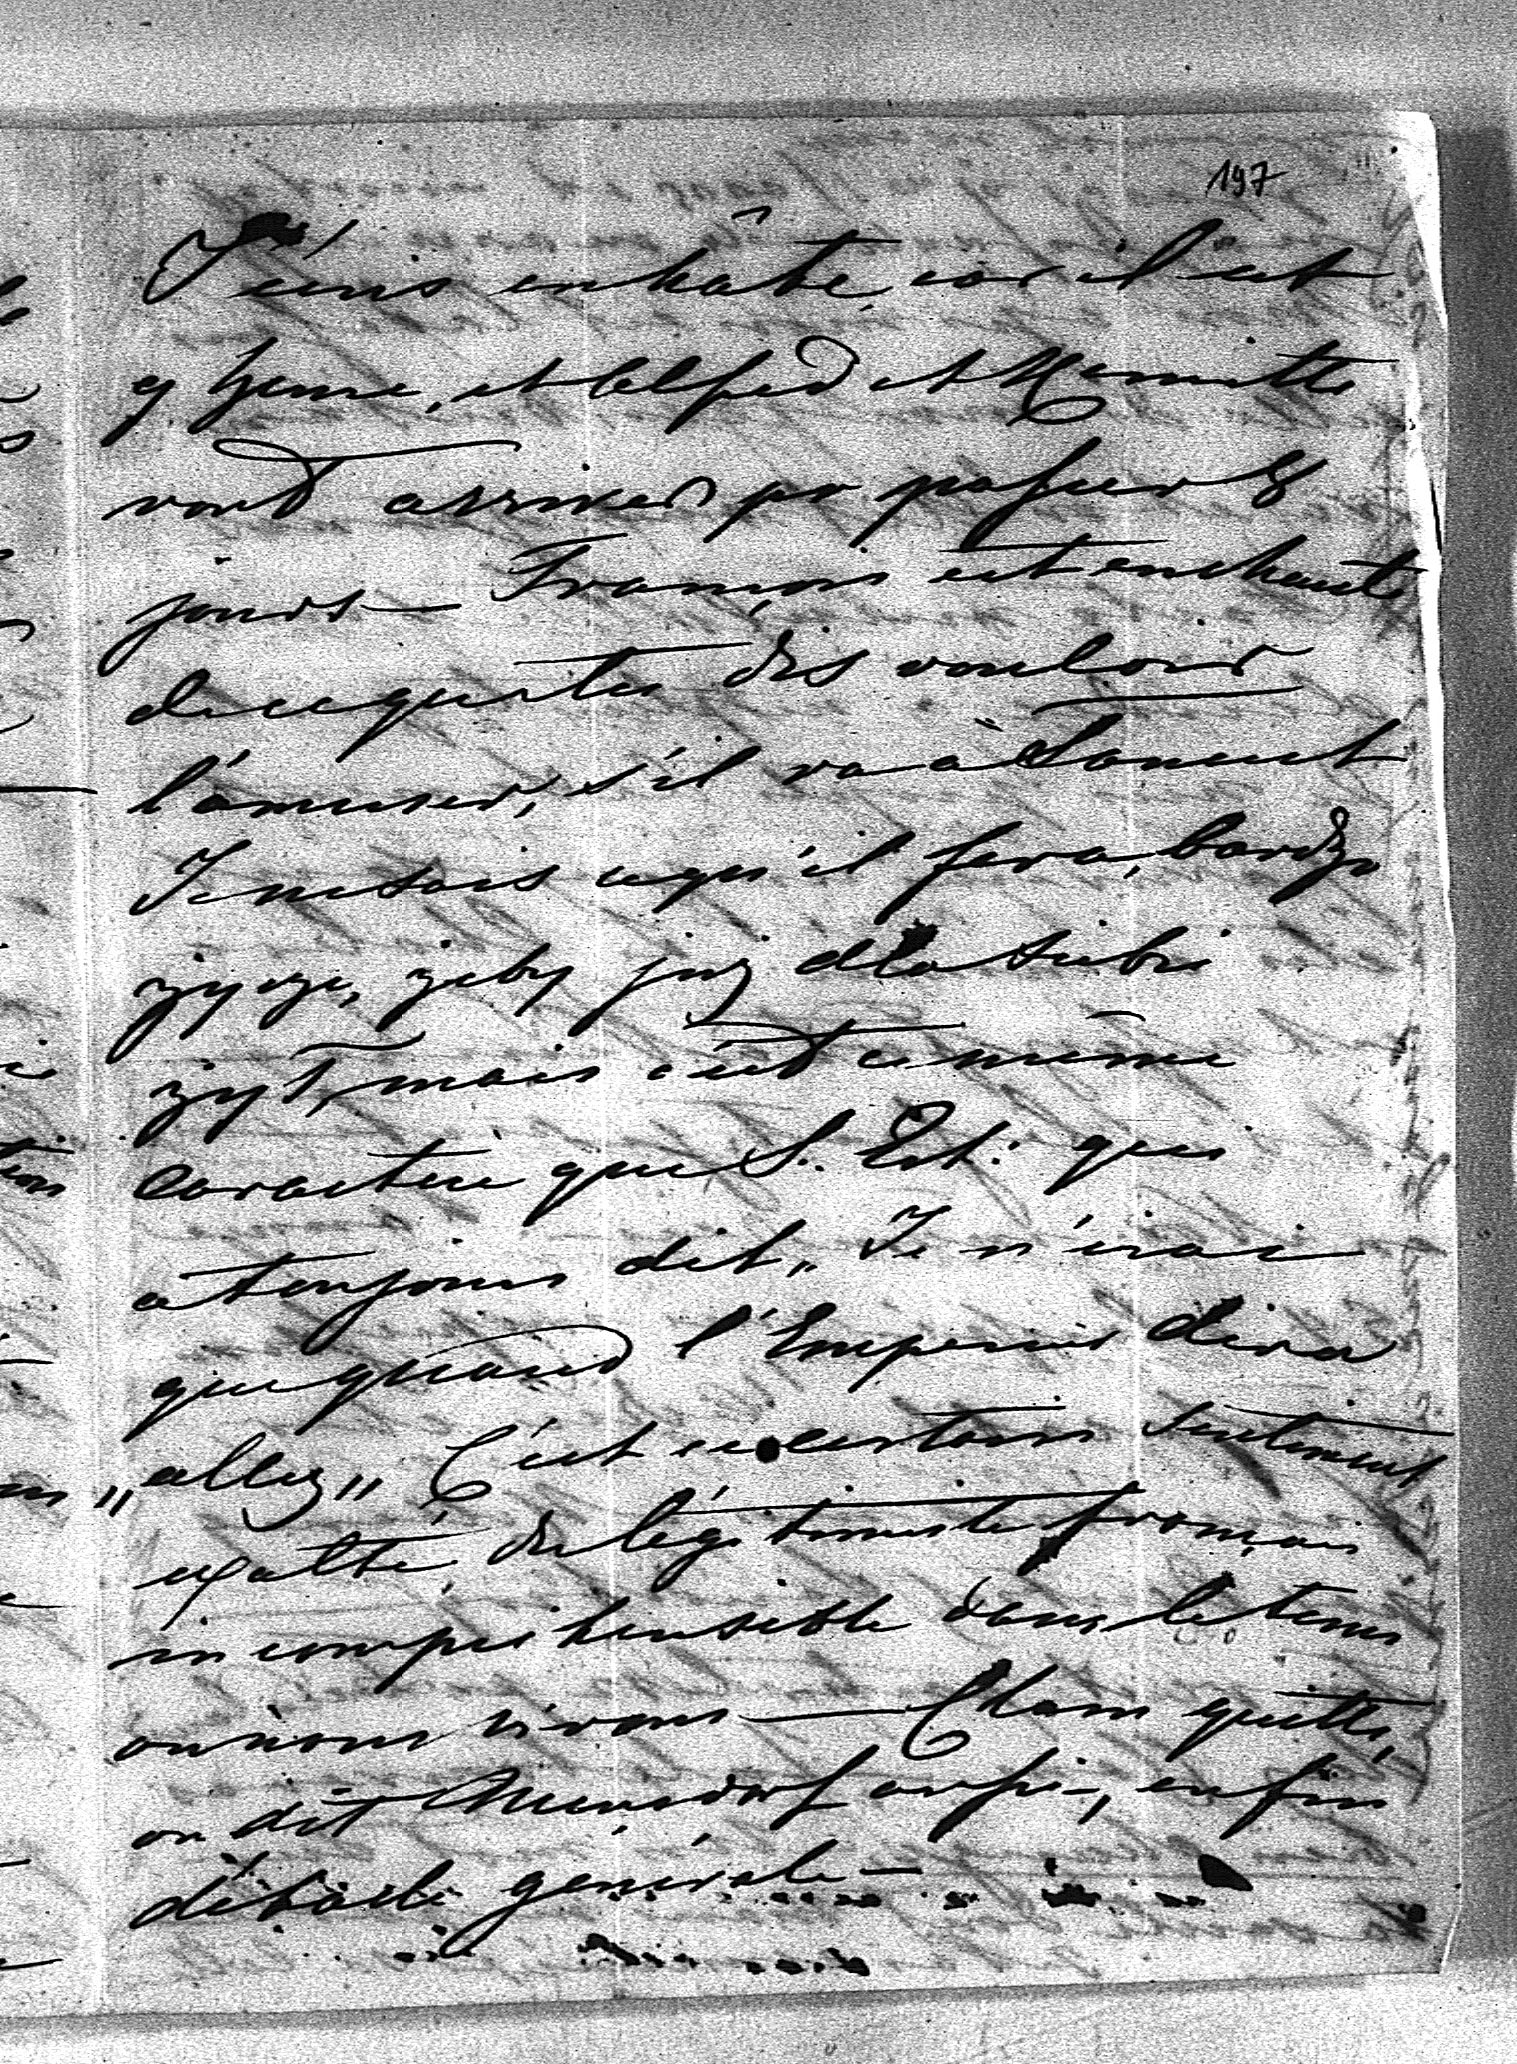 197
J'écris en hâte, car il est
9 heures, et Alfred et Mariette
vont arriver pr passer 8
jours — François est enchanté
de ce que tu dis vouloir
l'amuser, s'il va à Łańcut
Je ne sais ce qu'il fera, bardzo
życzę, żeby już dla siebie
żył, mais c'est ce même
caractère que S. Est: qui
a toujours dit „Je n'irai
que quand l'Empereur dira
„allez" C'est ce certain sentiment
exalté de légitimiste français
incompréhensible dans le tems
où nous vivons — Clam quitte,
on dit Mensdorf aussi, enfin
débâcle générale —